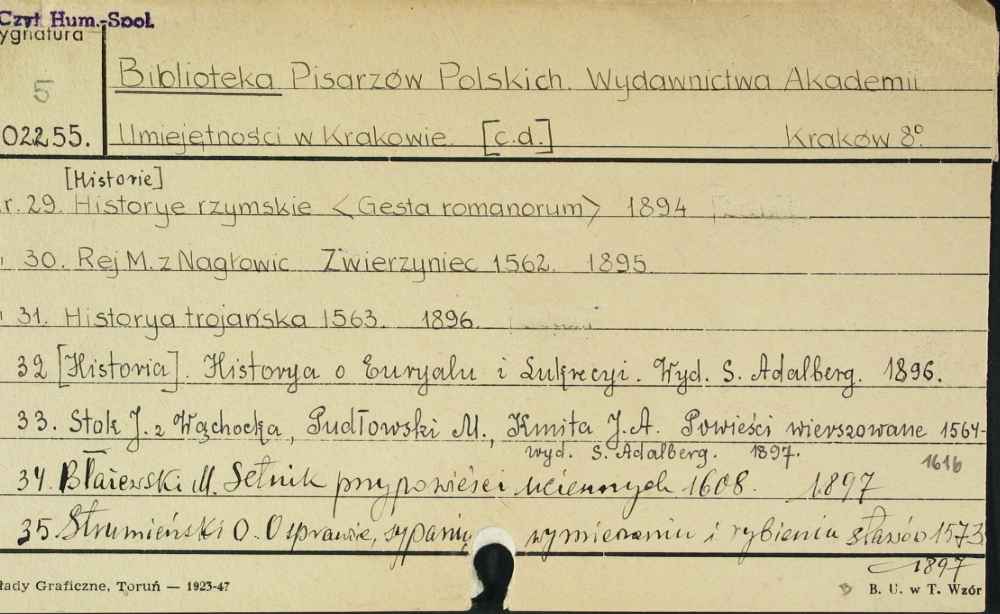 Czyt Hum.-Społ.
ygnatura
5
02255.
Biblioteka Pisarzów Polskich. Wydawnictwa Akademii
Umiejętności w Krakowie. [c.d.] Kraków 8º.
[Historie]
r. 29. Historye rzymskie <Gesta romanorum> 1894
30. Rej M. z Nagłowic Zwierzyniec 1562. 1895.
31. Historya trojańska 1563. 1896.
32 [Historia]. Historya o Euryalu i Lukrecyi. Wyd. S. Adalberg. 1896.
33. Stok J. z Wąchocka, Pudłowski M., Kmita J.A. Powieści wierszowane 1564-
1616
wyd. S. Adalberg. 1897.
34. Błażewski M. Setnik przypowieści uciesznych 1608. 1897
35 Strumieński O. O sprawie, sypaniu wymierzaniu i rybieniu stawów 1573
1897
łady Graficzne, Toruń — 1923-47
B. U. w T. Wzór